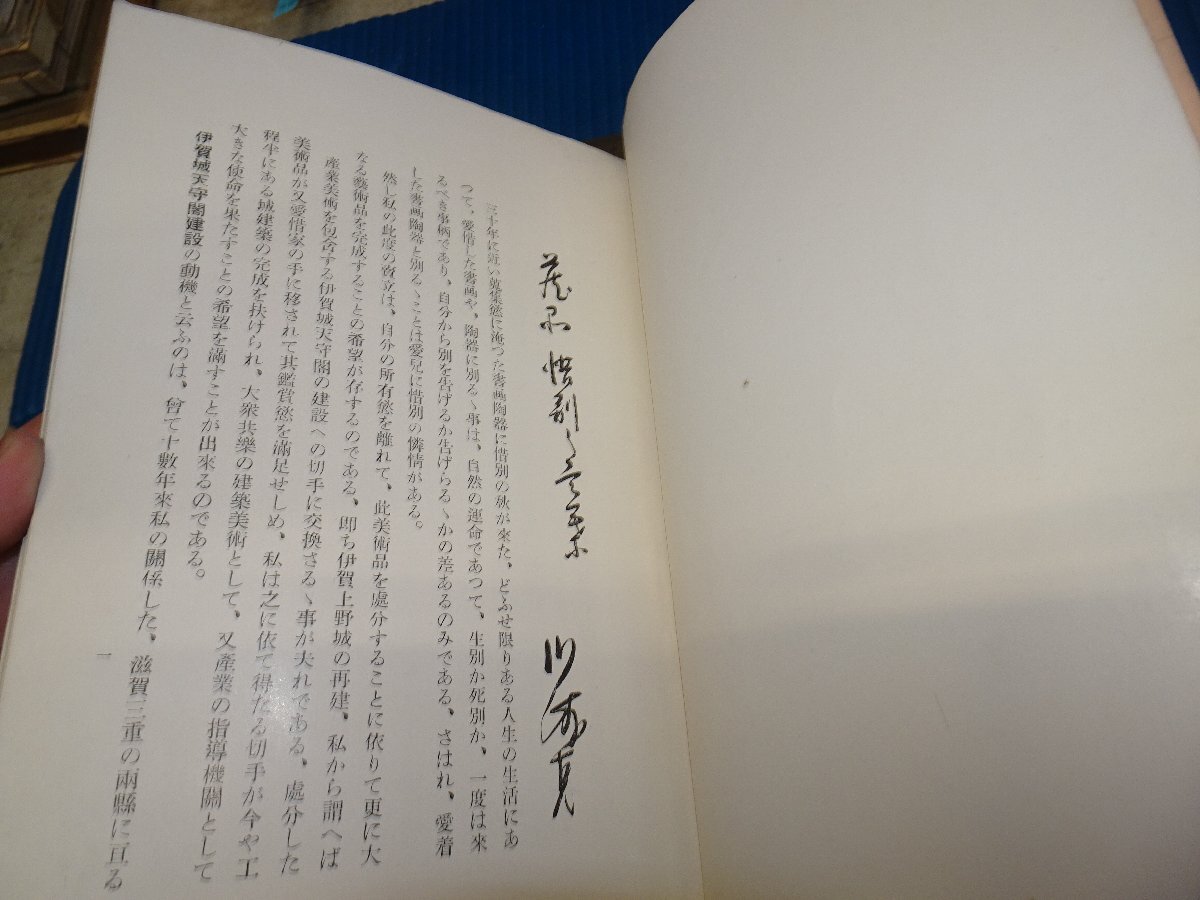 藏品惜別之言葉　川崎克
三十年に近い蒐集慾に淹つた書画陶器に惜別の秋が來た、どふせ限りある人生の生活にあ
つて、愛惜した書画や、陶器に別るゝ事は、自然の運命であつて、生別か死別か、一度は來
るべき事柄であり、自分から別を告げるか告げらるゝかの差あるのみである、さはれ、愛着
した書画陶器と別るゝことは愛兒に惜別の憐情がある。
然し私の此度の賣立は、自分の所有慾を離れて、此美術品を處分することに依りて更に大
なる藝術品を完成することの希望が存するのである、即ち伊賀上野城の再建、私から謂へば
産業美術を包含する伊賀城天守閣の建設への切手に交換さるゝ事が夫れである、處分した
美術品が又愛惜家の手に移されて其鑑賞慾を滿足せしめ、私は之に依て得たる切手が今や工
程半にある城建築の完成を扶けられ、大衆共樂の建築美術として、又產業の指導機關として
大きな使命を果たすことの希望を滿すことが出來るのである。
伊賀城天守閣建設の動機と云ふのは、曾て十數年來私の關係した、滋賀三重の兩縣に亘る
一